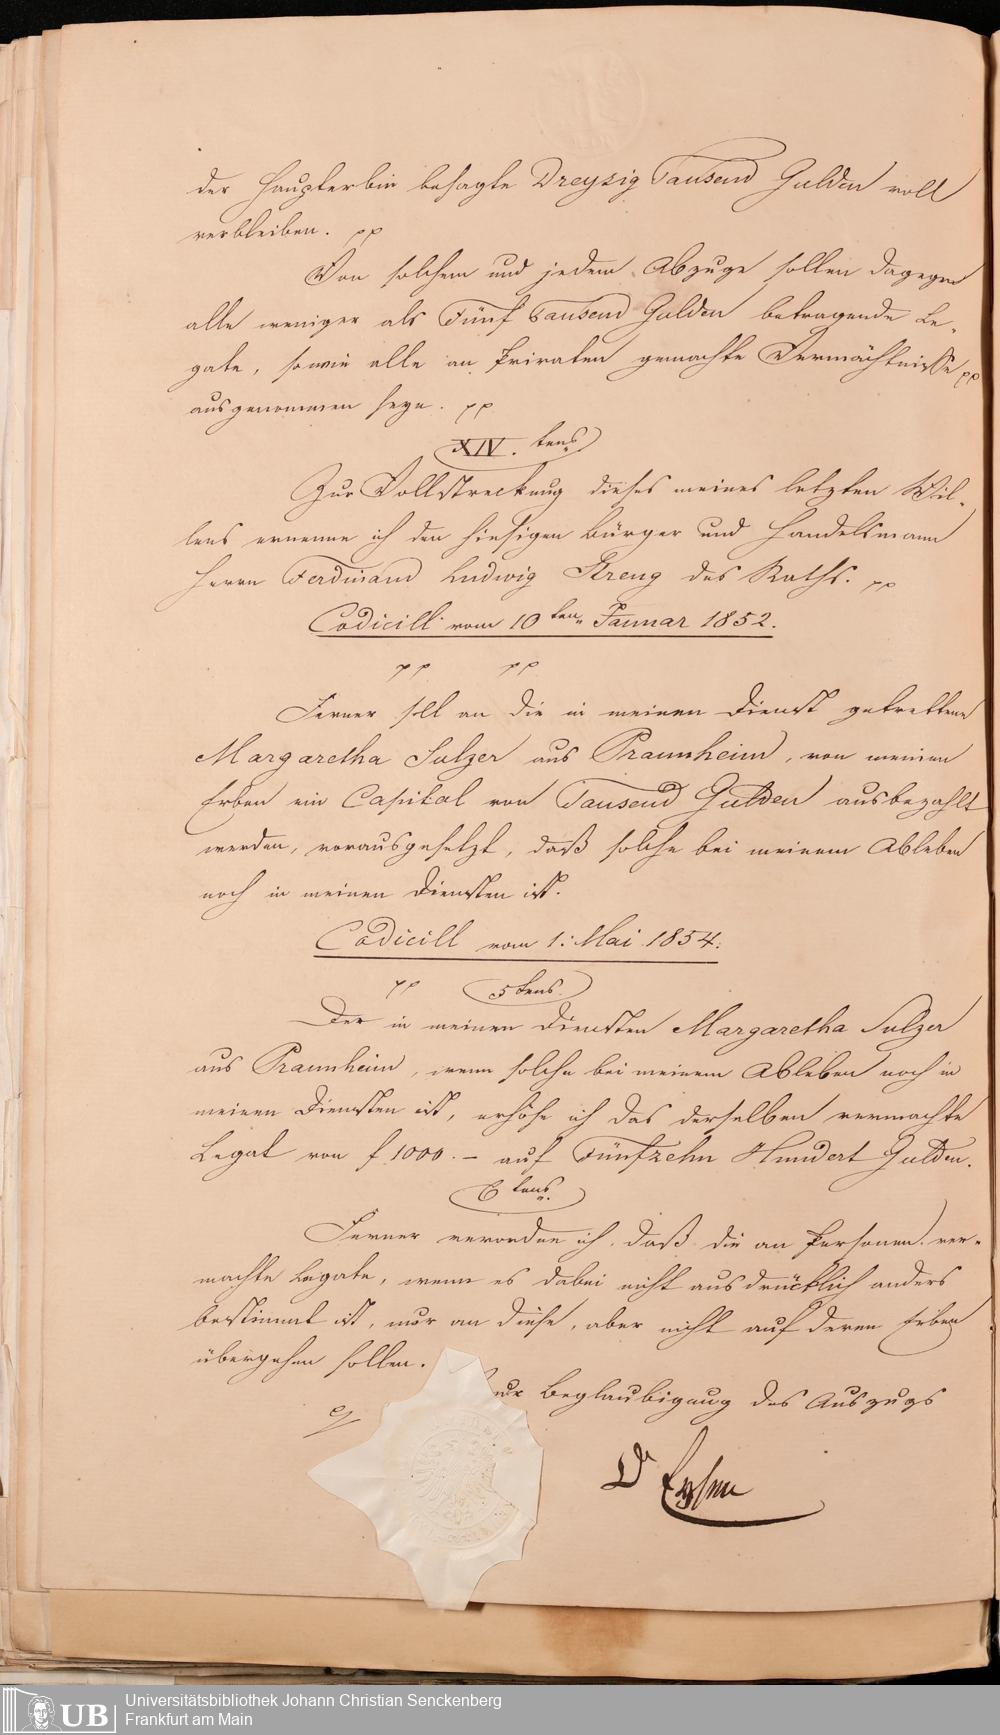 der Haupterbin besagte Dreyzig Tausend Gulden voll
verbleiben. pp
Von solchem und jedem Abzuge sollen dagegen
alle weniger als Fünf Tausend Gulden betragende Le-
gate, sowie alle an Privaten gemachte Vermächtnisse pp
ausgenommen seyn. pp
XIV. tens
Zur Vollstreckung dieses meines letzten Wil-
lens ernenne ich den hiesigen Bürger und Handelsmann
Herrn Ferdinand Ludwig Streng des Raths. pp
Codicill vom 10ten Januar 1852.
pp pp
Ferner soll an die in meinen Dienst getrettene
Margaretha Sulzer aus Praunheim, von meinen
Erben ein Capital von Tausend Gulden ausbezahlt
werden, vorausgesetzt, daß solche bei meinem Ableben
noch in meinen Diensten ist.
Codicill vom 1. Mai 1854.
pp 5tens.
Der in meinen Diensten Margaretha Sulzer
aus Praunheim, wenn solche bei meinem Ableben noch in
meinen Diensten ist, erhöhe ich das derselben vermachte
Legat von f 1000.– auf Fünfzehn Hundert Gulden.
6tens.
Ferner verordne ich, daß die an Personen ver-
machte Legate, wenn es dabei nicht ausdrücklich anders
bestimmt ist, nur an diese, aber nicht auf deren Erben
übergehen sollen.
Zur Beglaubigung des Auszugs
Dr
UB
Universitätsbibliothek Johann Christian Senckenberg
Frankfurt am Main